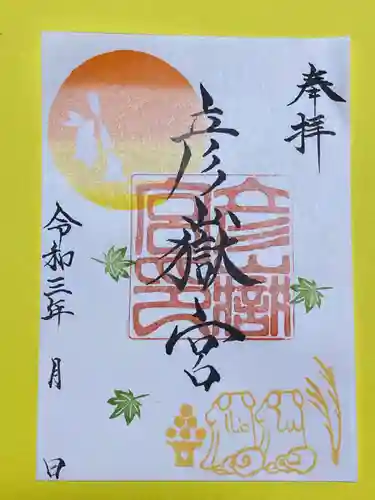 奉拝
彦嶽宮
彦嶽宮之印
令和三年 月 日